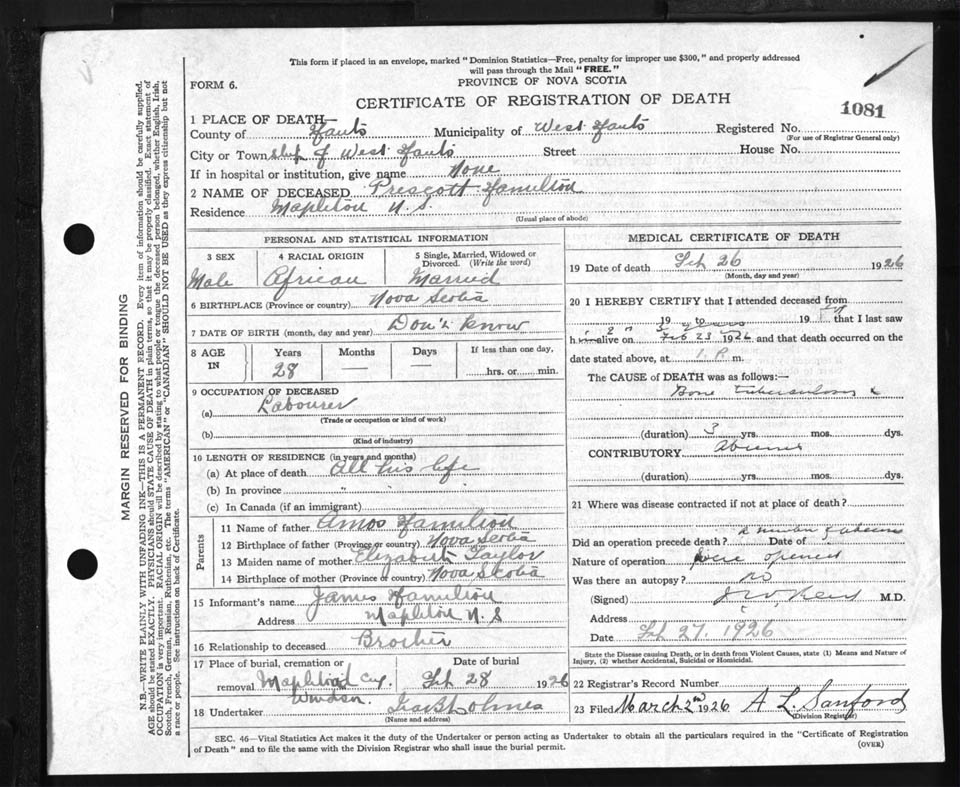 This form if placed in an envelope, marked "Dominion Statistics—Free, penalty for improper use $300," and properly addressed
will pass through the Mail "FREE."
FORM 6.
PROVINCE OF NOVA SCOTIA
CERTIFICATE OF REGISTRATION OF DEATH
1081
1 PLACE OF DEATH—
County of Hants Municipality of West Hants Registered No.
(For use of Registrar General only)
City or Town ship of West Hants Street House No.
If in hospital or institution, give name None
2 NAME OF DECEASED Prescott Hamilton
Residence Mapleton N.S.
(Usual place of abode)
PERSONAL AND STATISTICAL INFORMATION
3 SEX 4 RACIAL ORIGIN 5 Single, Married, Widowed or Divorced. (Write the word)
Male African Married
6 BIRTHPLACE (Province or country) Nova Scotia
7 DATE OF BIRTH (month, day and year) Don't know
8 AGE IN Years Months Days If less than one day,
28 — — hrs. or min.
9 OCCUPATION OF DECEASED
(a) Labourer
(Trade or occupation or kind of work)
(b)
(Kind of industry)
10 LENGTH OF RESIDENCE (in years and months)
(a) At place of death All his life
(b) In province " " "
(c) In Canada (if an immigrant)
Parents
11 Name of father Amos Hamilton
12 Birthplace of father (Province or country) Nova Scotia
13 Maiden name of mother Elizabeth Taylor
14 Birthplace of mother (Province or country) Nova Scotia
15 Informant's name James Hamilton
Address Mapleton N.S
16 Relationship to deceased Brother
17 Place of burial, cremation or removal Date of burial
Maplewood Cey. Feb 28 1926
Windsor
18 Undertaker
(Name and address)
MEDICAL CERTIFICATE OF DEATH
19 Date of death Feb 26 1926
(Month, day and year)
20 I HEREBY CERTIFY that I attended deceased from
19 to 19 that I last saw
h alive on Feb 23 1926 and that death occurred on the
date stated above, at 1 P. m.
The CAUSE of DEATH was as follows:—
Bone tuberculosis
(duration) 3 yrs. mos. dys.
CONTRIBUTORY
(duration) yrs. mos. dys.
21 Where was disease contracted if not at place of death?
Did an operation precede death? Date of
Nature of operation were opened
Was there an autopsy? no
(Signed) M.D.
Address
Date Feb 27. 1926
State the Disease Causing Death, or in death from Violent Causes, state (1) Means and Nature of
Injury, (2) whether Accidental, Suicidal or Homicidal.
22 Registrar's Record Number
23 Filed March 2nd 1926 A L Sanford
(Division Registrar)
SEC. 46—Vital Statistics Act makes it the duty of the Undertaker or person acting as Undertaker to obtain all the particulars required in the "Certificate of Registration
of Death" and to file the same with the Division Registrar who shall issue the burial permit.
(OVER)
MARGIN RESERVED FOR BINDING
N.B.—WRITE PLAINLY WITH UNFADING INK—THIS IS A PERMANENT RECORD. Every item of information should be carefully supplied.
AGE should be stated EXACTLY. PHYSICIANS should STATE CAUSE OF DEATH in plain terms, so that it may be properly classified. Exact statement of
OCCUPATION is very important. RACIAL ORIGIN will be described by stating to what people or tongue the deceased person belonged, whether English, Irish,
Scotch, French, German, Russian, Ruthenian, etc. The terms "AMERICAN" or "CANADIAN" SHOULD NOT BE USED as they express citizenship but not
a race or people. See instructions on back of Certificate.